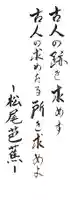 古人の跡を求めず
古人の求めたる所を求めよ
ー松尾芭蕉ー